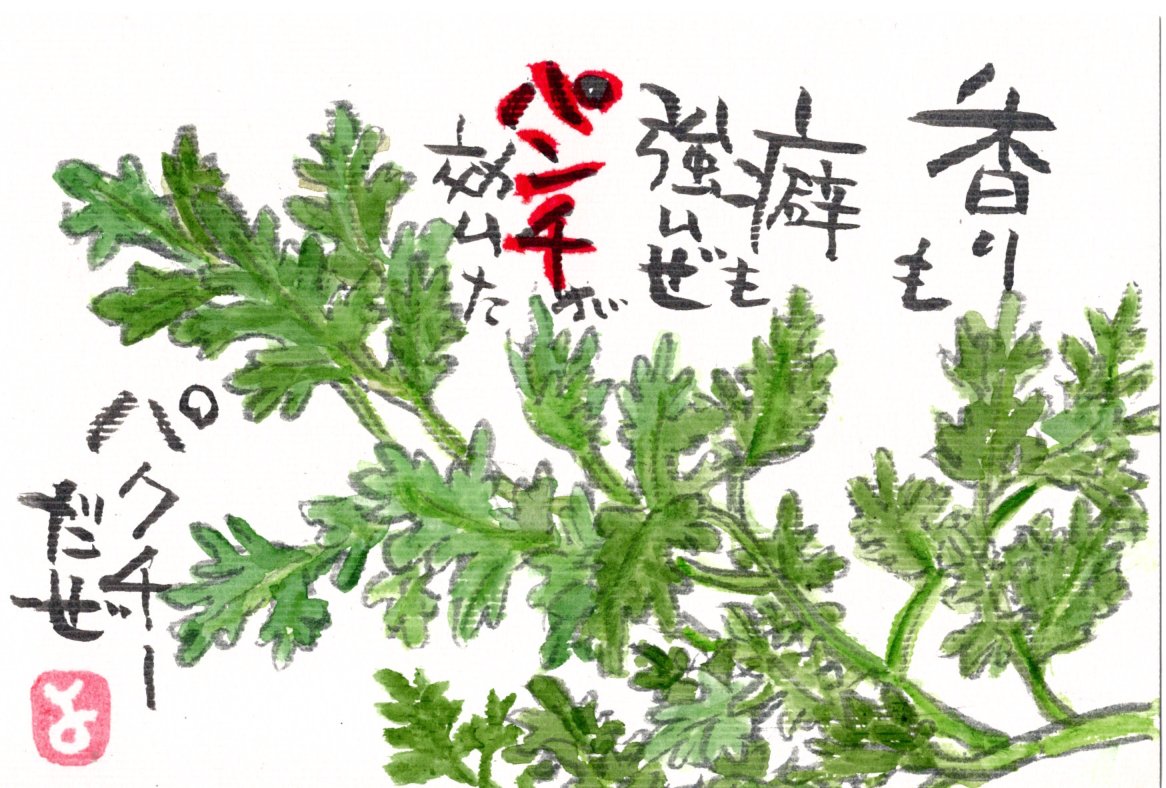 香りも
癖も
強いぜ
パンチが
効いた
パクチー
だぜ